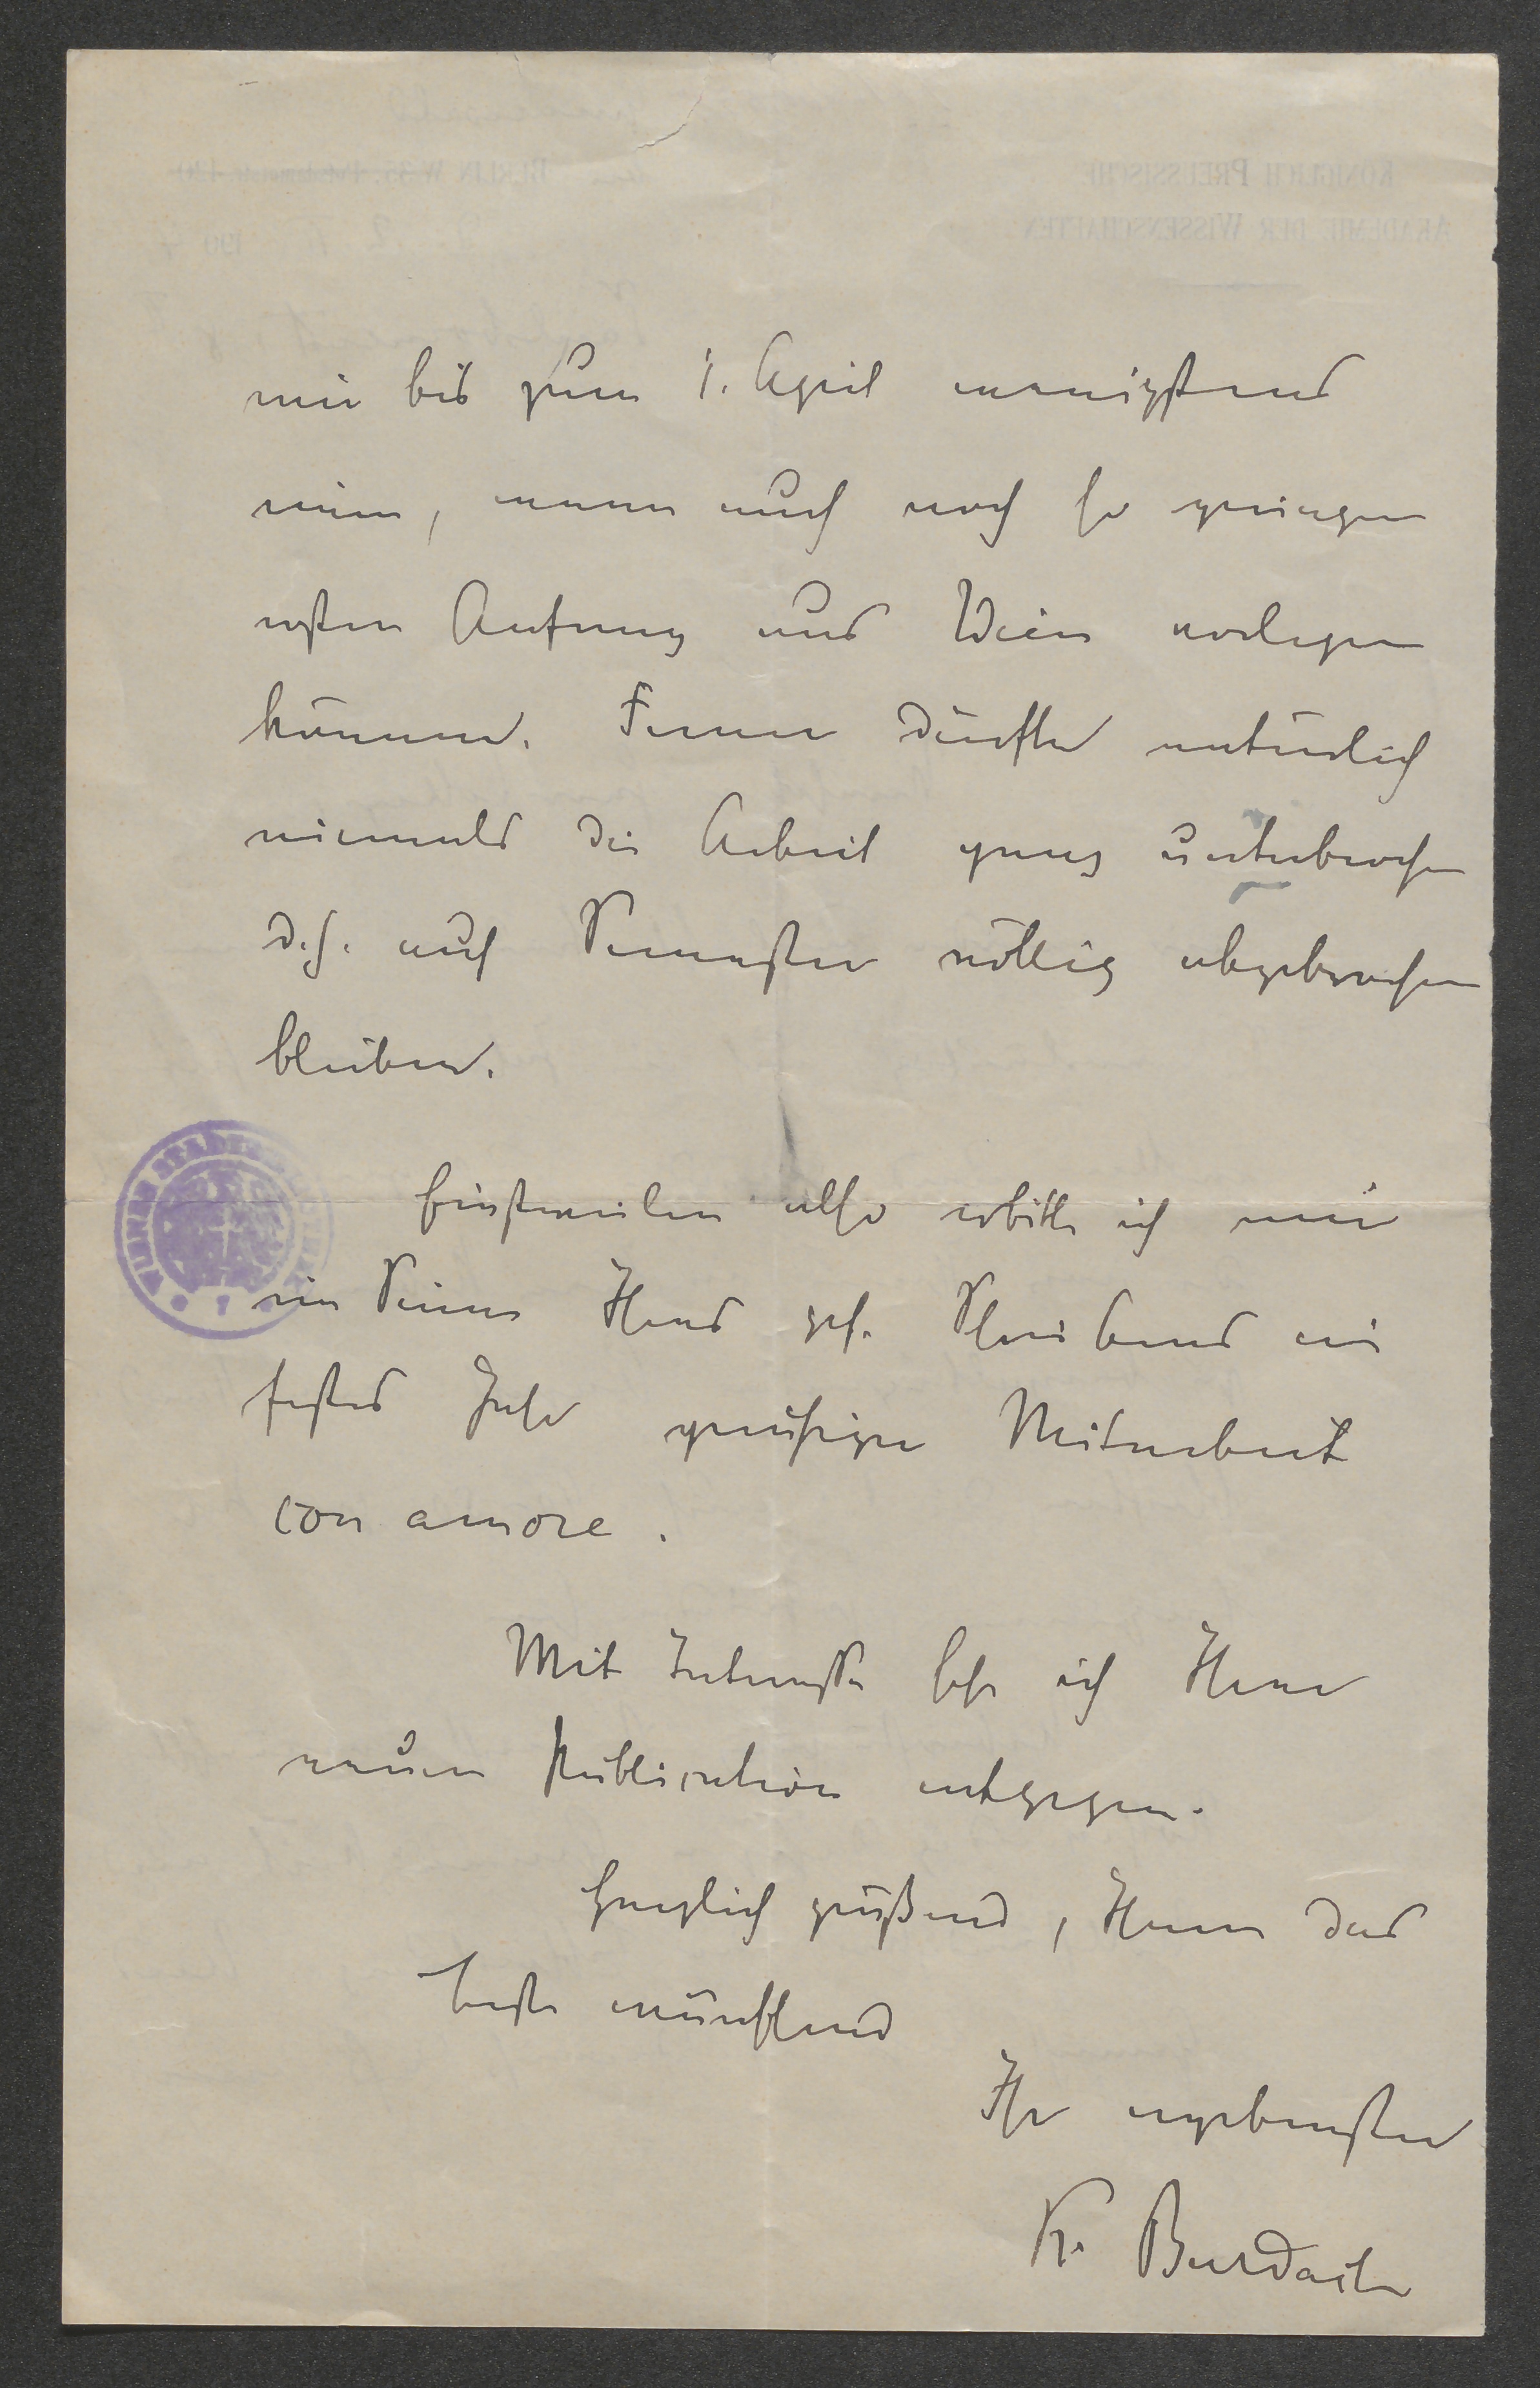 mir bis zum 1. April wenigstens
einen, wenn auch noch so geringen
ersten Anfang aus Wien vorlegen
können. Ferner dürfte natürlich
niemals die Arbeit ganz unterbrochen
d.h. auf Semester völlig abgebrochen
bleiben.
Einstweilen also erbitte ich mir
im Sinne Ihres gef. Schreibens ein
festes Jahr Mitarbeit
con amore.
Mit Interesse sehe ich Ihrer
neuen Publication entgegen.
Herzlich grüßend, Ihnen das
beste wünschend
Ihr ergebenster
K. Burdach